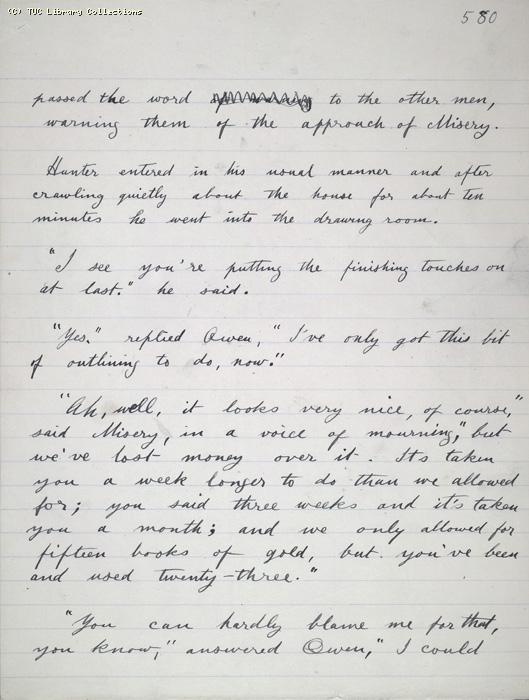 (C) TUC Library Collections
580
passed the word to the other men,
warning them of the approach of Misery.
Hunter entered in his usual manner and after
crawling quietly about the house for about ten
minutes he went into the drawing room.
"I see you're putting the finishing touches on
at last." he said.
"Yes." replied Owen, "I've only got this bit
of outlining to do, now."
"Ah, well, it looks very nice, of course,"
said Misery, in a voice of mourning," but
we've lost money over it. It's taken
you a week longer to do than we allowed
for; you said three weeks and it's taken
you a month; and we only allowed for
fifteen books of gold, but you've been
and used twenty-three."
"You can hardly blame me for that,
you know," answered Owen," I could